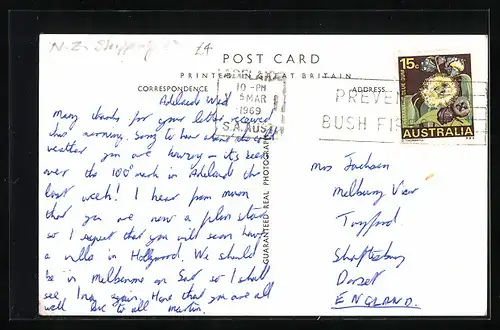 N.Z. Shipping Co
£4
POST CARD
PRINTED IN GREAT BRITAIN
CORRESPONDENCE
ADDRESS
ADELAIDE
10-PM
5 MAR
1969
S.A. AUST
PREVEN
BUSH FI
15c
AUSTRALIA
GUARANTEED REAL PHOTOGRAPH
Adelaide Wed
Many thanks for your letter received
this morning. Sorry to hear what
weather you are having - it's been
over the 100° mark in Adelaide the
last week! I hear from mum
that you are now a film star
so I expect that you will soon have
a villa in Hollywood. We should
be in Melbourne on Sat so I shall
see again. Hope that you are all
well love to all Martin.
Mrs Jackson
Melbury View
Twyford
Shaftesbury
Dorset
ENGLAND.